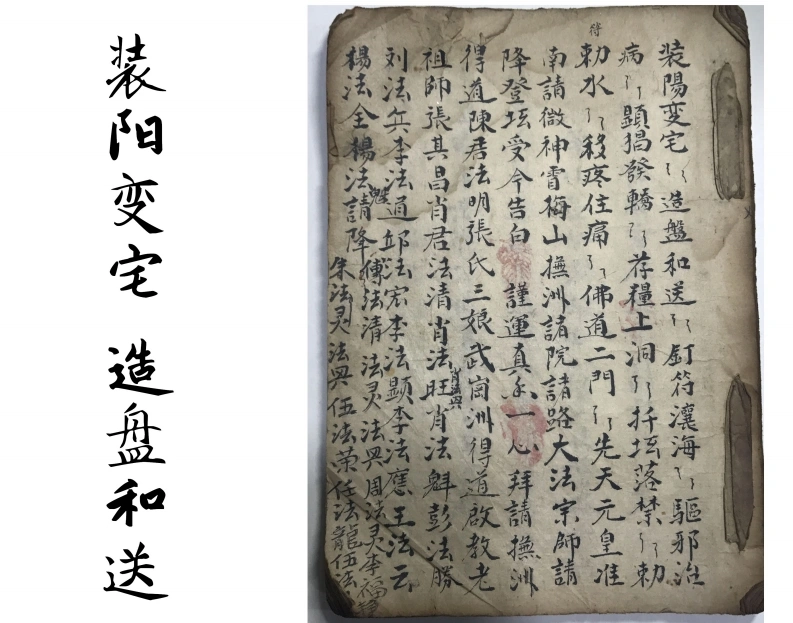 装阳变宅 造盘和送
符
装陽变宅〻造盤和送〻釘符瀼海〻驅邪治
病〻顕猖發轎〻荐糧上洞〻扦坛落禁〻勅
勅水〻移疼住痛〻佛道二門〻先天元皇准
南請微神霄梅山撫洲諸院諸路大法宗師請
降登坛受今告白 謹運真香一心拜請撫洲
得道陳君法明張氏三娘武崗洲得道啟教老
祖師張其昌肖君法清肖法旺肖法魁彭法勝
肖法興
刘法兵李法道邱法宏李法顕李法應王法云
楊法全楊法請降傅法清法灵法興周法灵李福
朱法灵法興伍法荣任法龍伍法